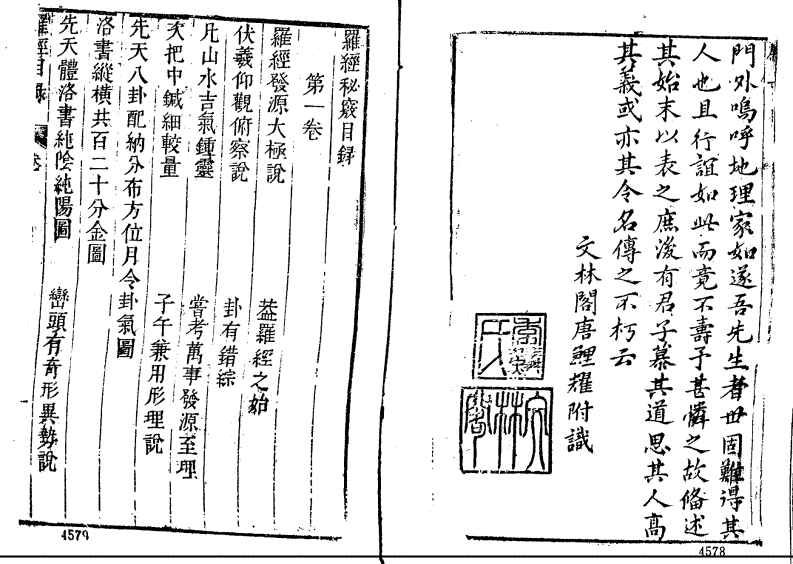 門外嗚呼地理家如遂吾先生者世固難得其
人也且行誼如此而竟不壽予甚憐之故俻述
其始末以表之庶後有君子慕其道思其人高
其義或亦其令名傳之不朽云
文林閣唐鯉耀附識
4578
羅經秘竅目録
第一卷
羅經發源大極說
葢羅經之始
伏羲仰觀俯察說
卦有錯綜
凡山水吉氣鍾靈
嘗考萬事發源至理
天把中鍼細較量
子午兼用形理說
先天八卦配納分布方位月令卦氣圖
洛書縱橫共百二十分金圖
先天體洛書純陰純陽圖
巒頭有奇形異勢說
羅經目録
卷
4579